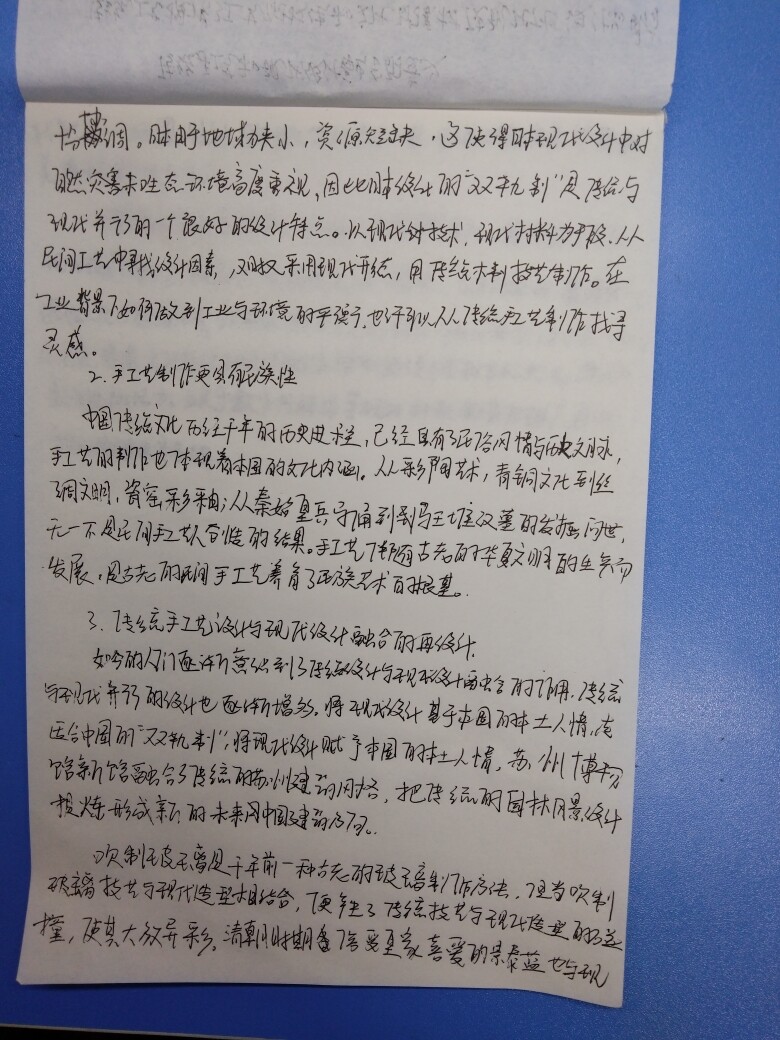 协调。日本由于地域狭小，资源短缺，这使得日本现代设计中对
自然灾害和生态环境高度重视，因此日本设计的“双轨制”是传统与
现代并行的一个很好的设计特点。以现代科技术，现代材料为手段，从
民间工艺中寻找设计因素，又采用现代形态，用传统木制技艺制作。在
工业背景下如何做到工业与环境的平衡，也许可以从传统手工艺制作找寻
灵感。
2.手工艺制作更具有民族性
中国传统文化历经千年的历史进程，已经具有了民俗风情与历史文脉，
手工艺的制作也体现着本国的文化内涵。从彩陶艺术，青铜文化到丝
绸文明，瓷窑彩釉；从秦始皇兵马俑到马王堆汉墓的发掘问世，
无一不是民间手工艺人合性的结果。手工艺随古老的华夏文明的生矣而
发展，是古老的民间手工艺养育了民族艺术的根基。
3.传统手工艺设计与现代设计融合的再设计.
如今的人们逐渐意识到了传统设计与现代设计融合的作用，传统
与现代并行的设计也逐渐增多。将现代设计基于本国的本土人情，
适合中国的“双轨制”，将现代设计赋予本国的本土人情，苏州博物
馆新馆融合了传统的苏州建筑风格，把传统的园林风景设计
提炼形成新的未来中国建筑方向。
吹制玻璃是千年前一种古老的玻璃制作方法，但当吹制
玻璃技艺与现代造型相结合，便产生了传统技艺与现代造型的碰
撞，使其大放异彩。清朝时期备受皇家喜爱的景泰蓝也与现